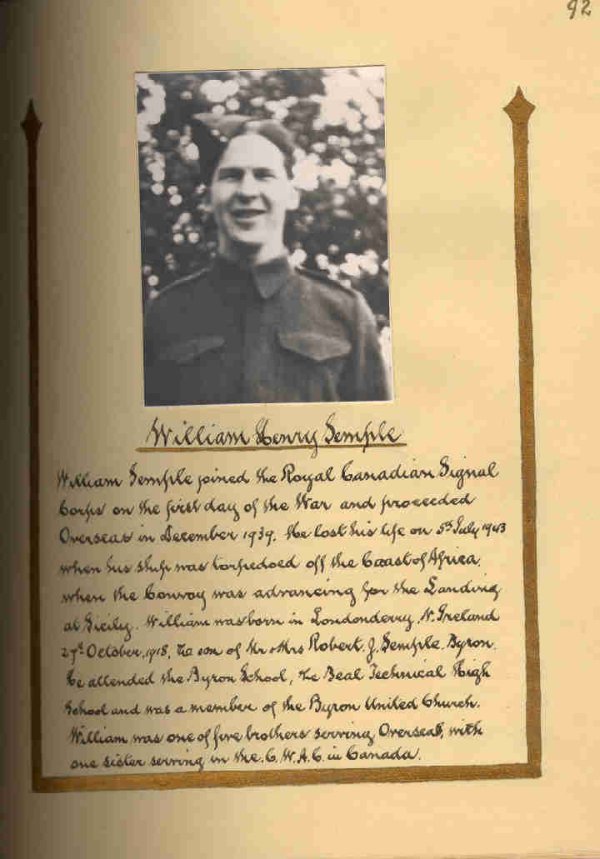 92
William Henry Semple
William Semple joined the Royal Canadian Signal
Corps on the first day of the War and proceeded
Overseas in December 1939. He lost his life on 5th July 1943
when his ship was torpedoed off the Coast of Africa.
when the Convoy was advancing for the Landing
at Sicily. William was born in Londonderry, N. Ireland
27th October, 1918, the son of Mr & Mrs Robert. J. Semple. Byron.
he attended the Byron School, the Beal Technical High
School and was a member of the Byron United Church.
William was one of five brothers serving Overseas, with
one sister serving in the. C. W. A. C. in Canada.